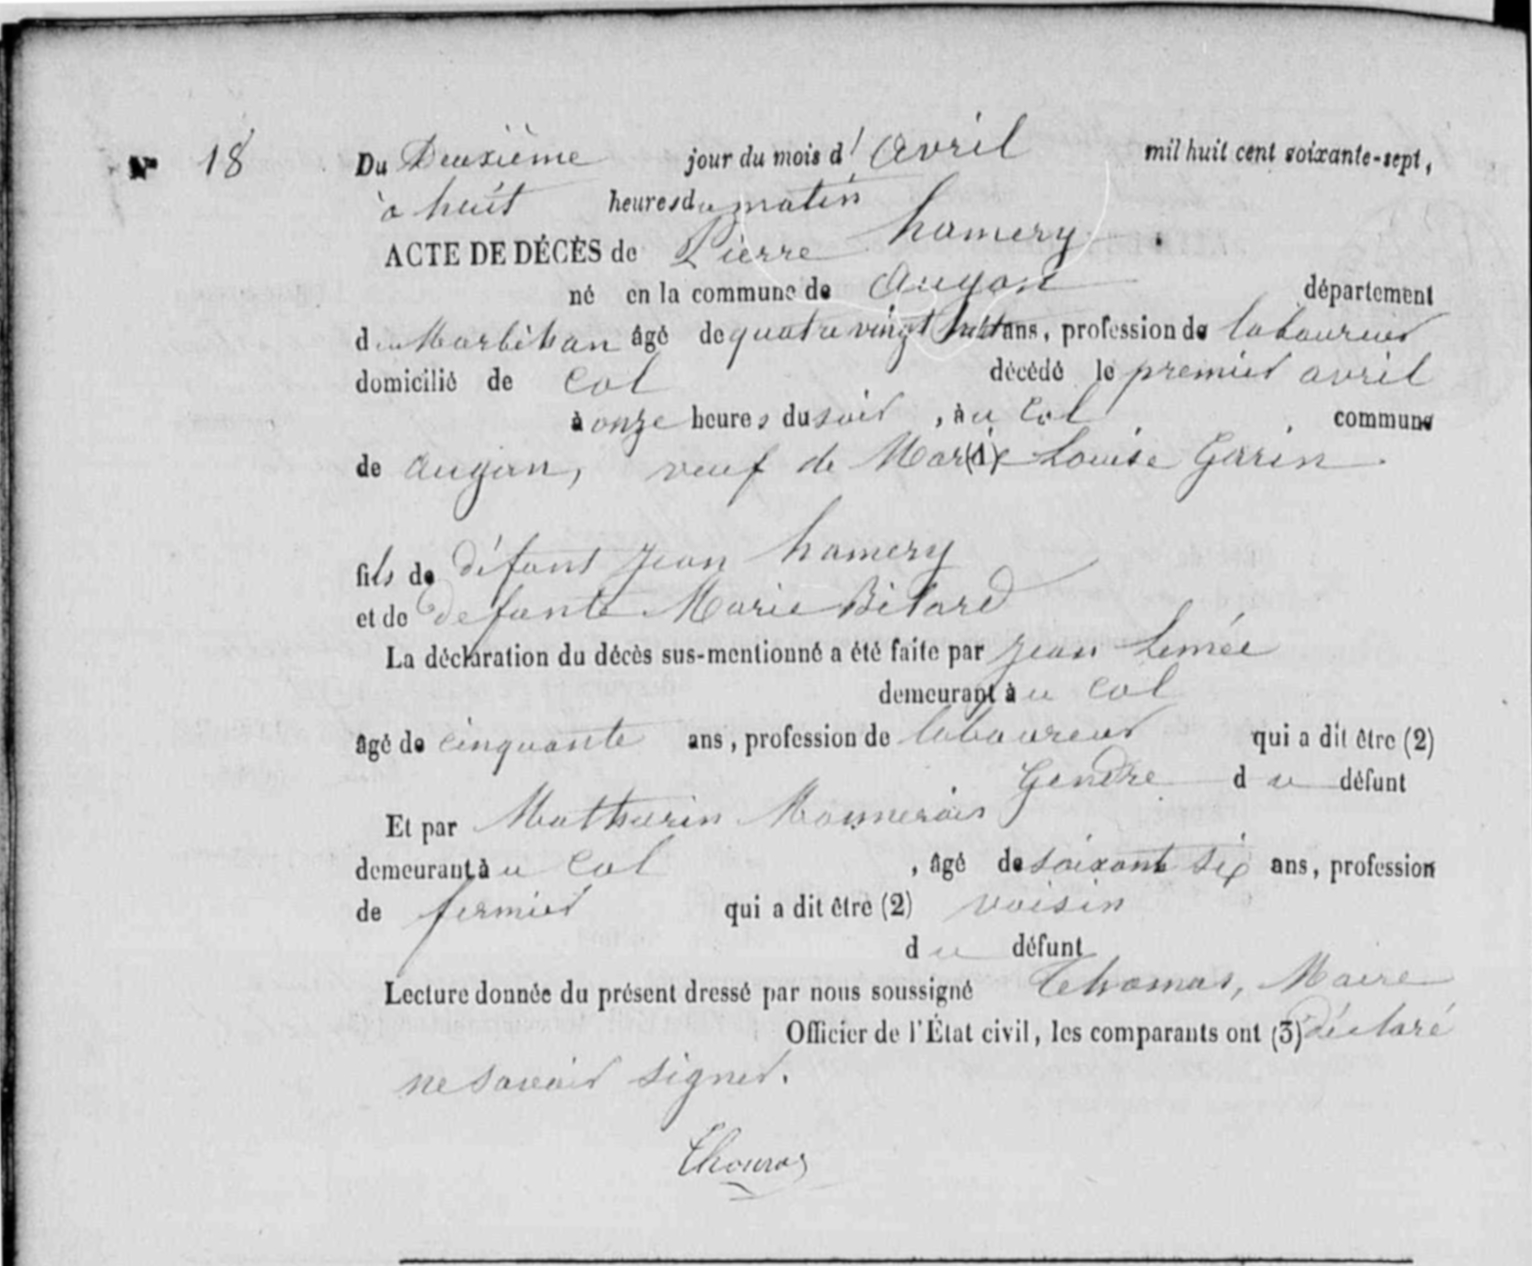 N° 18
Du Deuxième jour du mois d' Avril mil huit cent soixante-sept,
à huit heures du matin
ACTE DE DÉCÈS de Pierre hamery
né en la commune de Augan département
du Morbihan âgé de quatre vingt huit ans, profession de laboureur
domicilié de Col décédé le premier avril
à onze heures du soir, à u Col commune
de augan, veuf de Marie (1) Louise Garin
fils de défunt Jean hamery
et de defunte Marie Bétard
La déclaration du décès sus-mentionné a été faite par Jean Lemée
demeurant à u Col
âgé de cinquante ans, profession de laboureur qui a dit être (2)
Gendre du défunt
Et par Mathurin Monnerais
demeurant à u Col, âgé de soixante six ans, profession
de fermier qui a dit être (2) voisin
du défunt
Lecture donnée du présent dressé par nous soussigné Thomas, Maire
Officier de l'État civil, les comparants ont (3) déclaré
ne savoir signer.
Thomas